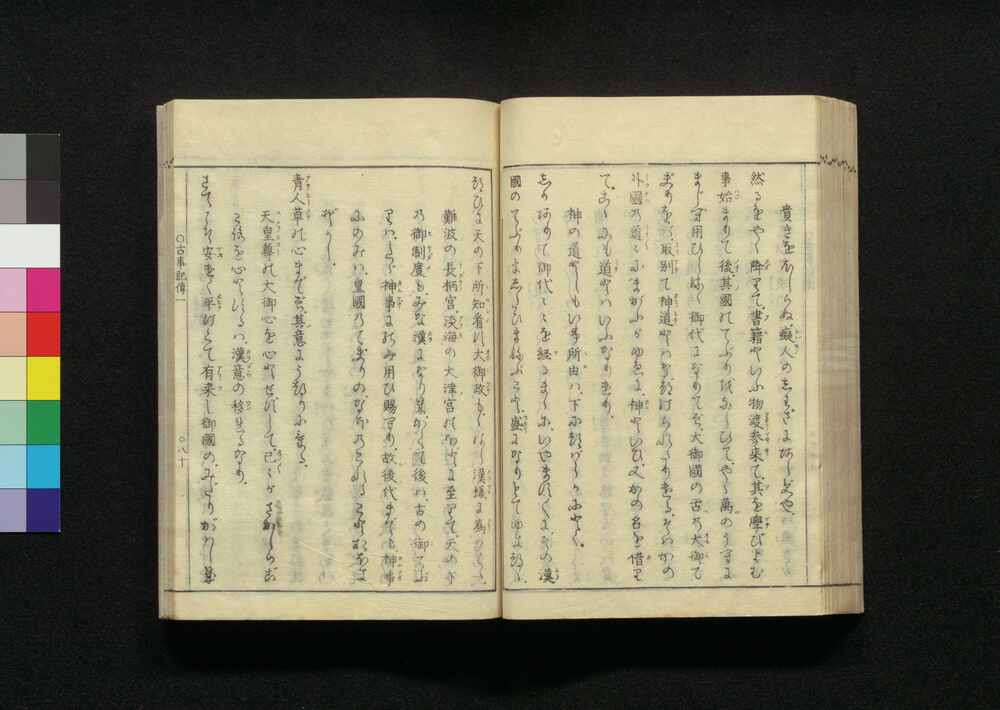 貴きをおしらぬ、癡人のしわざにあらずや、
然るをやゝ降りて、書籍といふ物渡參來て、其を學びよむ
事始まりて後、其國のてぶりをならひて、やゝ萬のうへに
まじへ用ひらるゝ御代になりてぞ、大御國の古の大御て
ぶりをば、取別て神道とはなづけられたりける、そはかの
外國の道々にまがふがゆゑに、神といひ、又かの名を借りて
て、こゝにも道とはいふなりけり、
神の道としもいふ所由は、下につばらかにいふべし、
しかありて御代々々を經るまゝに、いやますますに、その漢
國のてぶりをしたひまねぶこと、盛になりもてゆきつゝ、
つひに天の下所知看す大御政も、もはら漢樣に爲はてゝ、
難波の長柄宮、淡海の大津宮のほどに至りて、天の下
の御制度も、みな漢になりき、かくて後は、古の御てぶり
りは、たゞ神事にのみ用ひ賜へり、故後代までも、神事
にのみは、皇國のてぶりの、なほのこれることおほきぞかし、
ぞかし、
青人草の心までぞ、其意にうつりにける、
天皇尊の大御心を心とせずして、己々がさかしらごゝろを
こゝろを心とするは、漢意の移れるなり、
さてこそ安けく平けくて有來し御國の、みだりがはしき
〇古事記傳一
〇八十